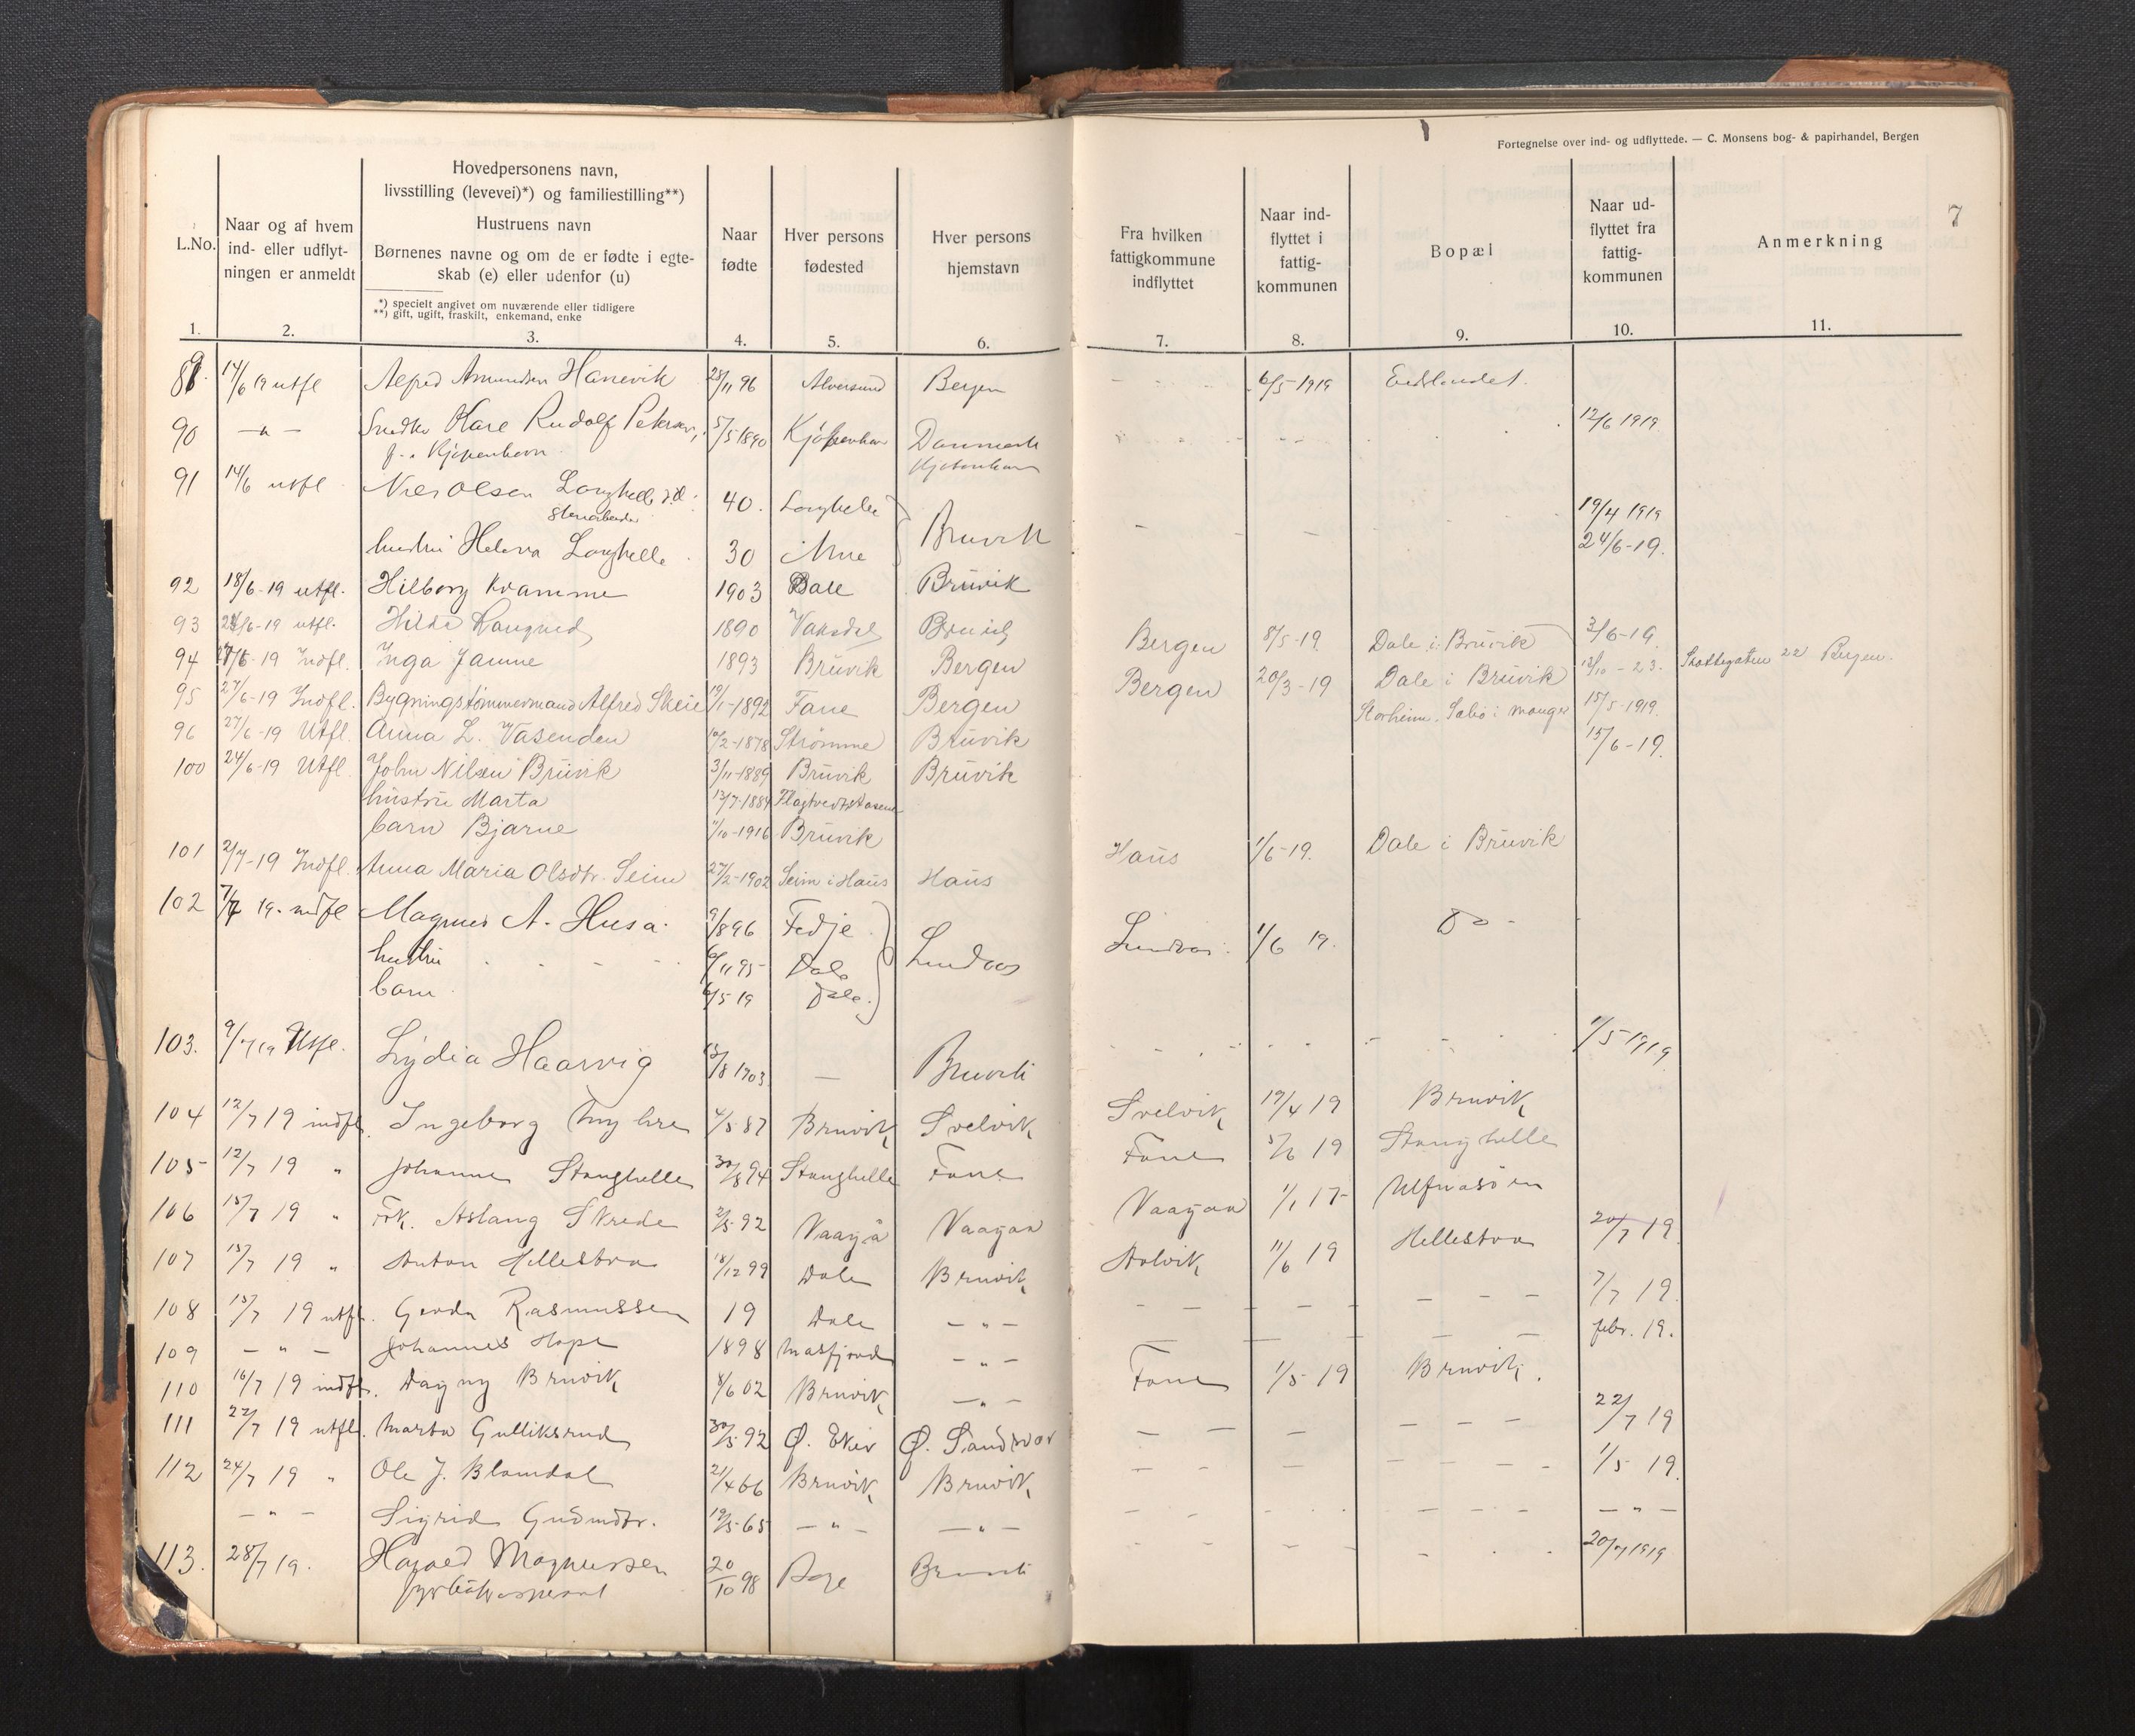 Fortegnelse over ind- og udflyttede. — C. Monsens bog- & papirhandel, Bergen
7
L.No. 1.
Naar og af hvem ind- eller udflyt- ningen er anmeldt 2.
Hovedpersonens navn,
livsstilling (levevei)*) og familiestilling**)
Hustruens navn
Børnenes navne og om de er fødte i egte-
skab (e) eller udenfor (u)
*) specielt angivet om nuværende eller tidligere
**) gift, ugift, fraskilt, enkemand, enke
3.
Naar fødte 4.
Hver persons fødested 5.
Hver persons hjemstavn 6.
Fra hvilken fattigkommune indflyttet 7.
Naar ind- flyttet i fattig- kommunen 8.
Bopæl 9.
Naar ud- flyttet fra fattig- kommunen 10.
Anmerkning 11.
14/6 19 utfl Alfred Amundsen Hanevik 25/11 96 Alversund Bergen 6/5 1919 Eidslandet.
90 — " — Rudolf Petersen, 5/5 1890 Kjøbenhavn Danmark 12/6 1919
Kjøpenhavn Kjøbenhavn
91 14/6 utfl Nils Olsen Langhelle 40. Langhelle Bruvik 19/4 1919
hustru Helena Langhelle 30 Arne 24/6-19.
92 18/6-19 utfl. Hilborg Kvamme 1903 Dale Bruvik
93 24/6-19 utfl. Hilda 1890 Vaksdal Bruvik 3/6-19
94 27/6-19 Indfl. Inga Janne 1893 Bruvik Bergen Bergen 8/5-19. Dale i Bruvik 12/10-23. 22 Bergen.
95 27/6-19 Indfl. Bygningstømmermand Alfred Skeie 19/1-1892 Fane Bergen Bergen 20/3-19 Dale i Bruvik 15/5-1919.
96 27/6-19 Utfl. Anna L. Vasenden 10/2-1878 Strømme Bruvik Storheim. Sæbø i Manger 15/6-19.
100 24/6-19 Utfl. John Nilsen Bruvik 3/11-1889 Bruvik Bruvik
hustru Marta 13/7-1884
barn Bjarne 11/10-1916 Bruvik
101 2/7-19 Indfl. Anna Maria Olsdtr. Seim 27/2-1902 Seim i Haus Haus Haus 1/6-19. Dale i Bruvik
102 7/7 19. indfl Magnus A. Husa. 9/8 96 Fedje Lindaas Lindaas 1/6 19. Do -
hustru 6/11 95 Dale
barn 6/5 19 Dale.
103. 9/7 19 Utfl. Lydia Haarvig 13/8 1903 — Bruvik 1/5 1919
104 12/7 19 indfl. Ingeborg Myhre 4/5 87 Bruvik Svelvik Svelvik 19/4 19 Bruvik
105 12/7 19 " Johanne Stanghelle 30/8 94 Stanghelle Fane Fane 5/6 19 Stanghelle
106 15/7 19 " Frk. Aslaug Skrede 2/5 92 Vaagå Vaagan Vaagan 1/1 17 Ulfnasøen 20/7 19.
107 15/7 19 " Anton Hellestvo 18/12 99 Dale Bruvik Aalvik 11/6 19 Hellestvo
108 15/7 19 utfl. Gerda Rasmussen 19 Dale — " — 7/7 19.
109 — " — Johannes Hope 1898 Masfjord — " — febr. 19.
110 16/7 19 indfl. Dagny Bruvik 8/6 02 Bruvik — " — Fane 1/5-19 Bruvik.
111 22/7 19 utfl. Marta Gulliksrud 30/5 92 Ø. Eker Ø. Sandsvær 22/7 19
112 24/7 19 " Ole J. Blomdal 21/4 66 Bruvik Bruvik 1/5 19.
— " — Sigrid Gudmdtr. 19/5 65 — " — — " — — " —
113. 28/7 19. Magnussen 20/10 98 Bruvik 20/7 1919